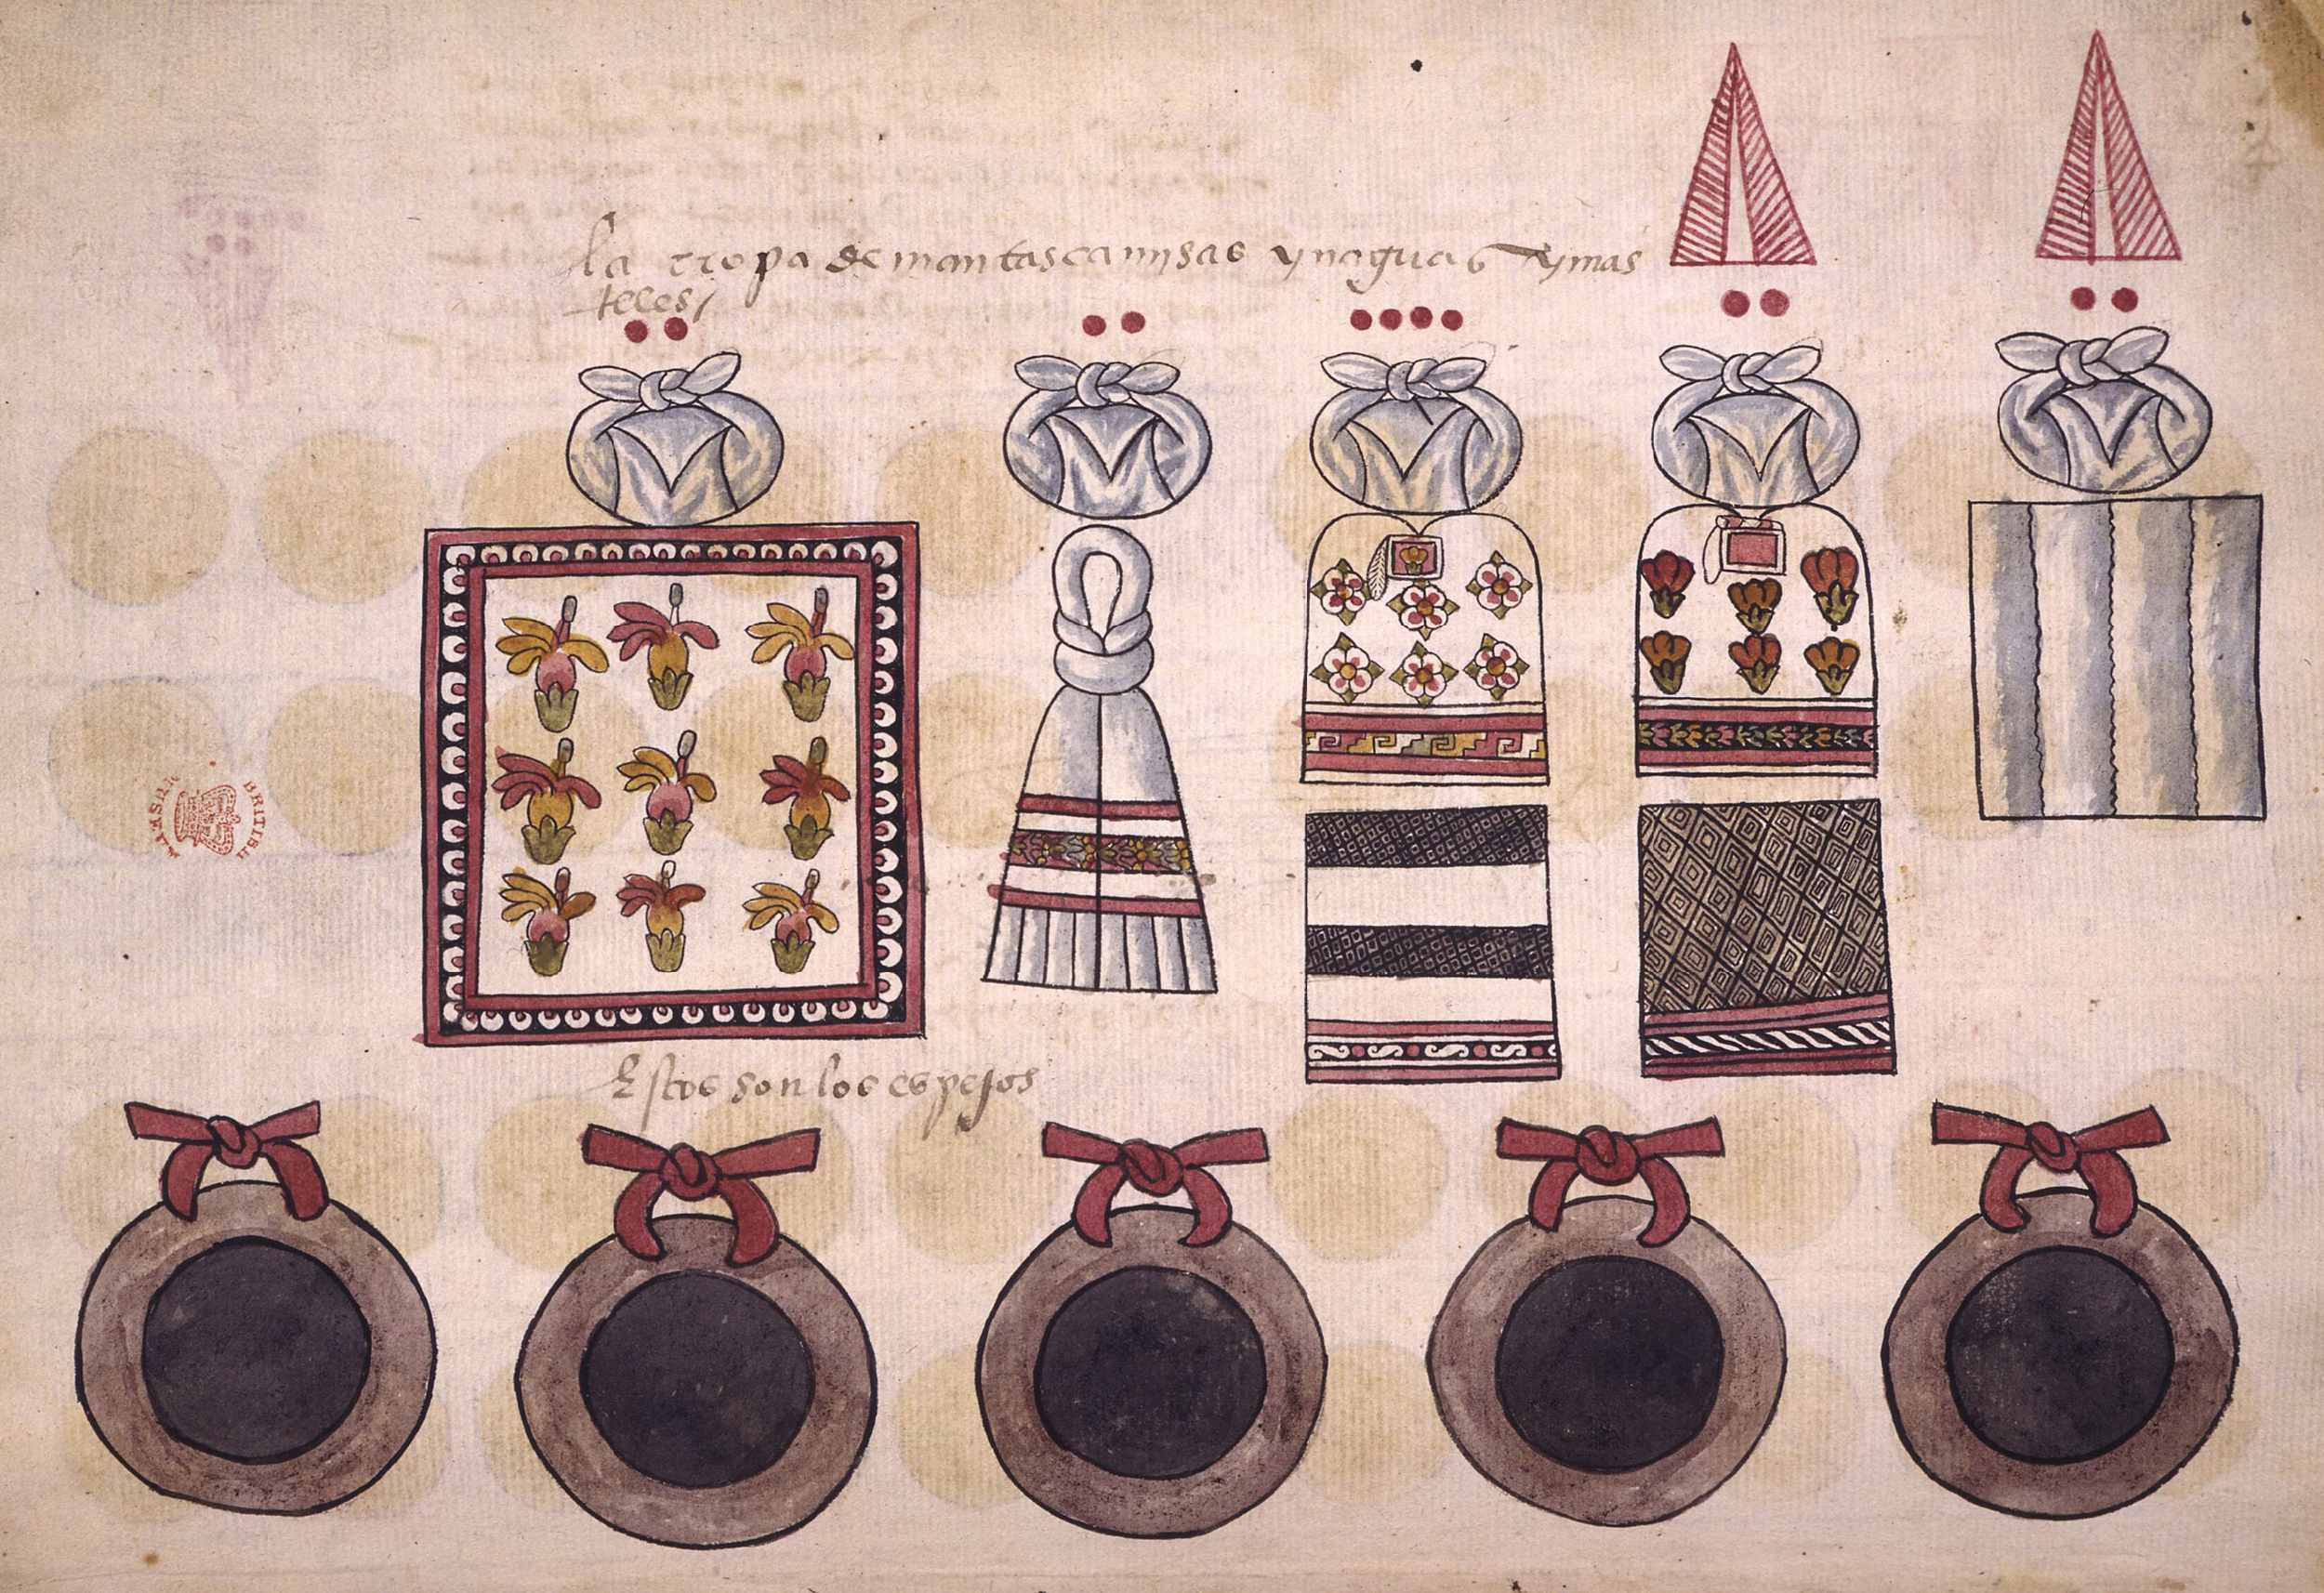 la rropa de mantas camisas ynaguas ymas
teles
Estos son los espejos
BRITISH
MUSEUM